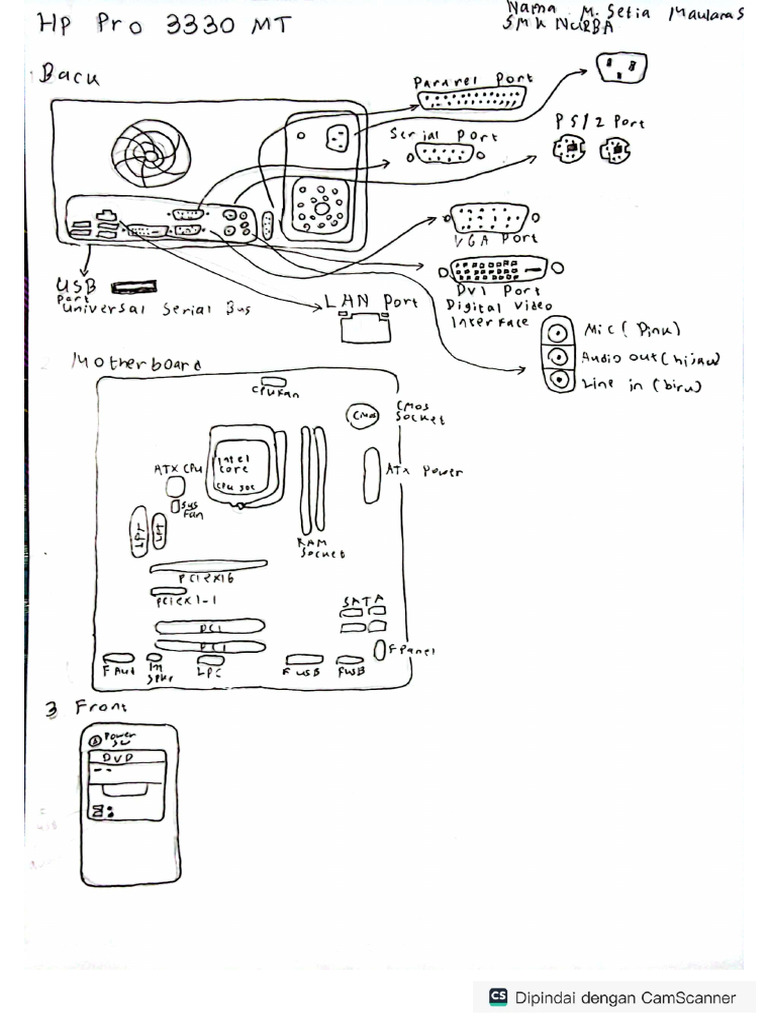 HP Pro 3330 MT
Nama M. Setia Maulana S
SMK NURBA
Back
Pararel Port
Serial Port
PS/2 Port
VGA Port
DVI Port
Digital Video
Interface
USB
Port
Universal Serial Bus
LAN Port
Mic (Pink)
Audio out (hijau)
Line in (biru)
2 Motherboard
CPU Fan
CMOS
CMOS
Socket
Intel
Core
CPU Soc
ATX CPU
Sys
Fan
ATX Power
RAM
Socket
PCI EX16
PCI EX1-1
SATA
PCI
PCI
F Panel
F Aud
In
Spkr
LPC
F USB
FUSB
3 Front
Power
SW
DVD
CS Dipindai dengan CamScanner